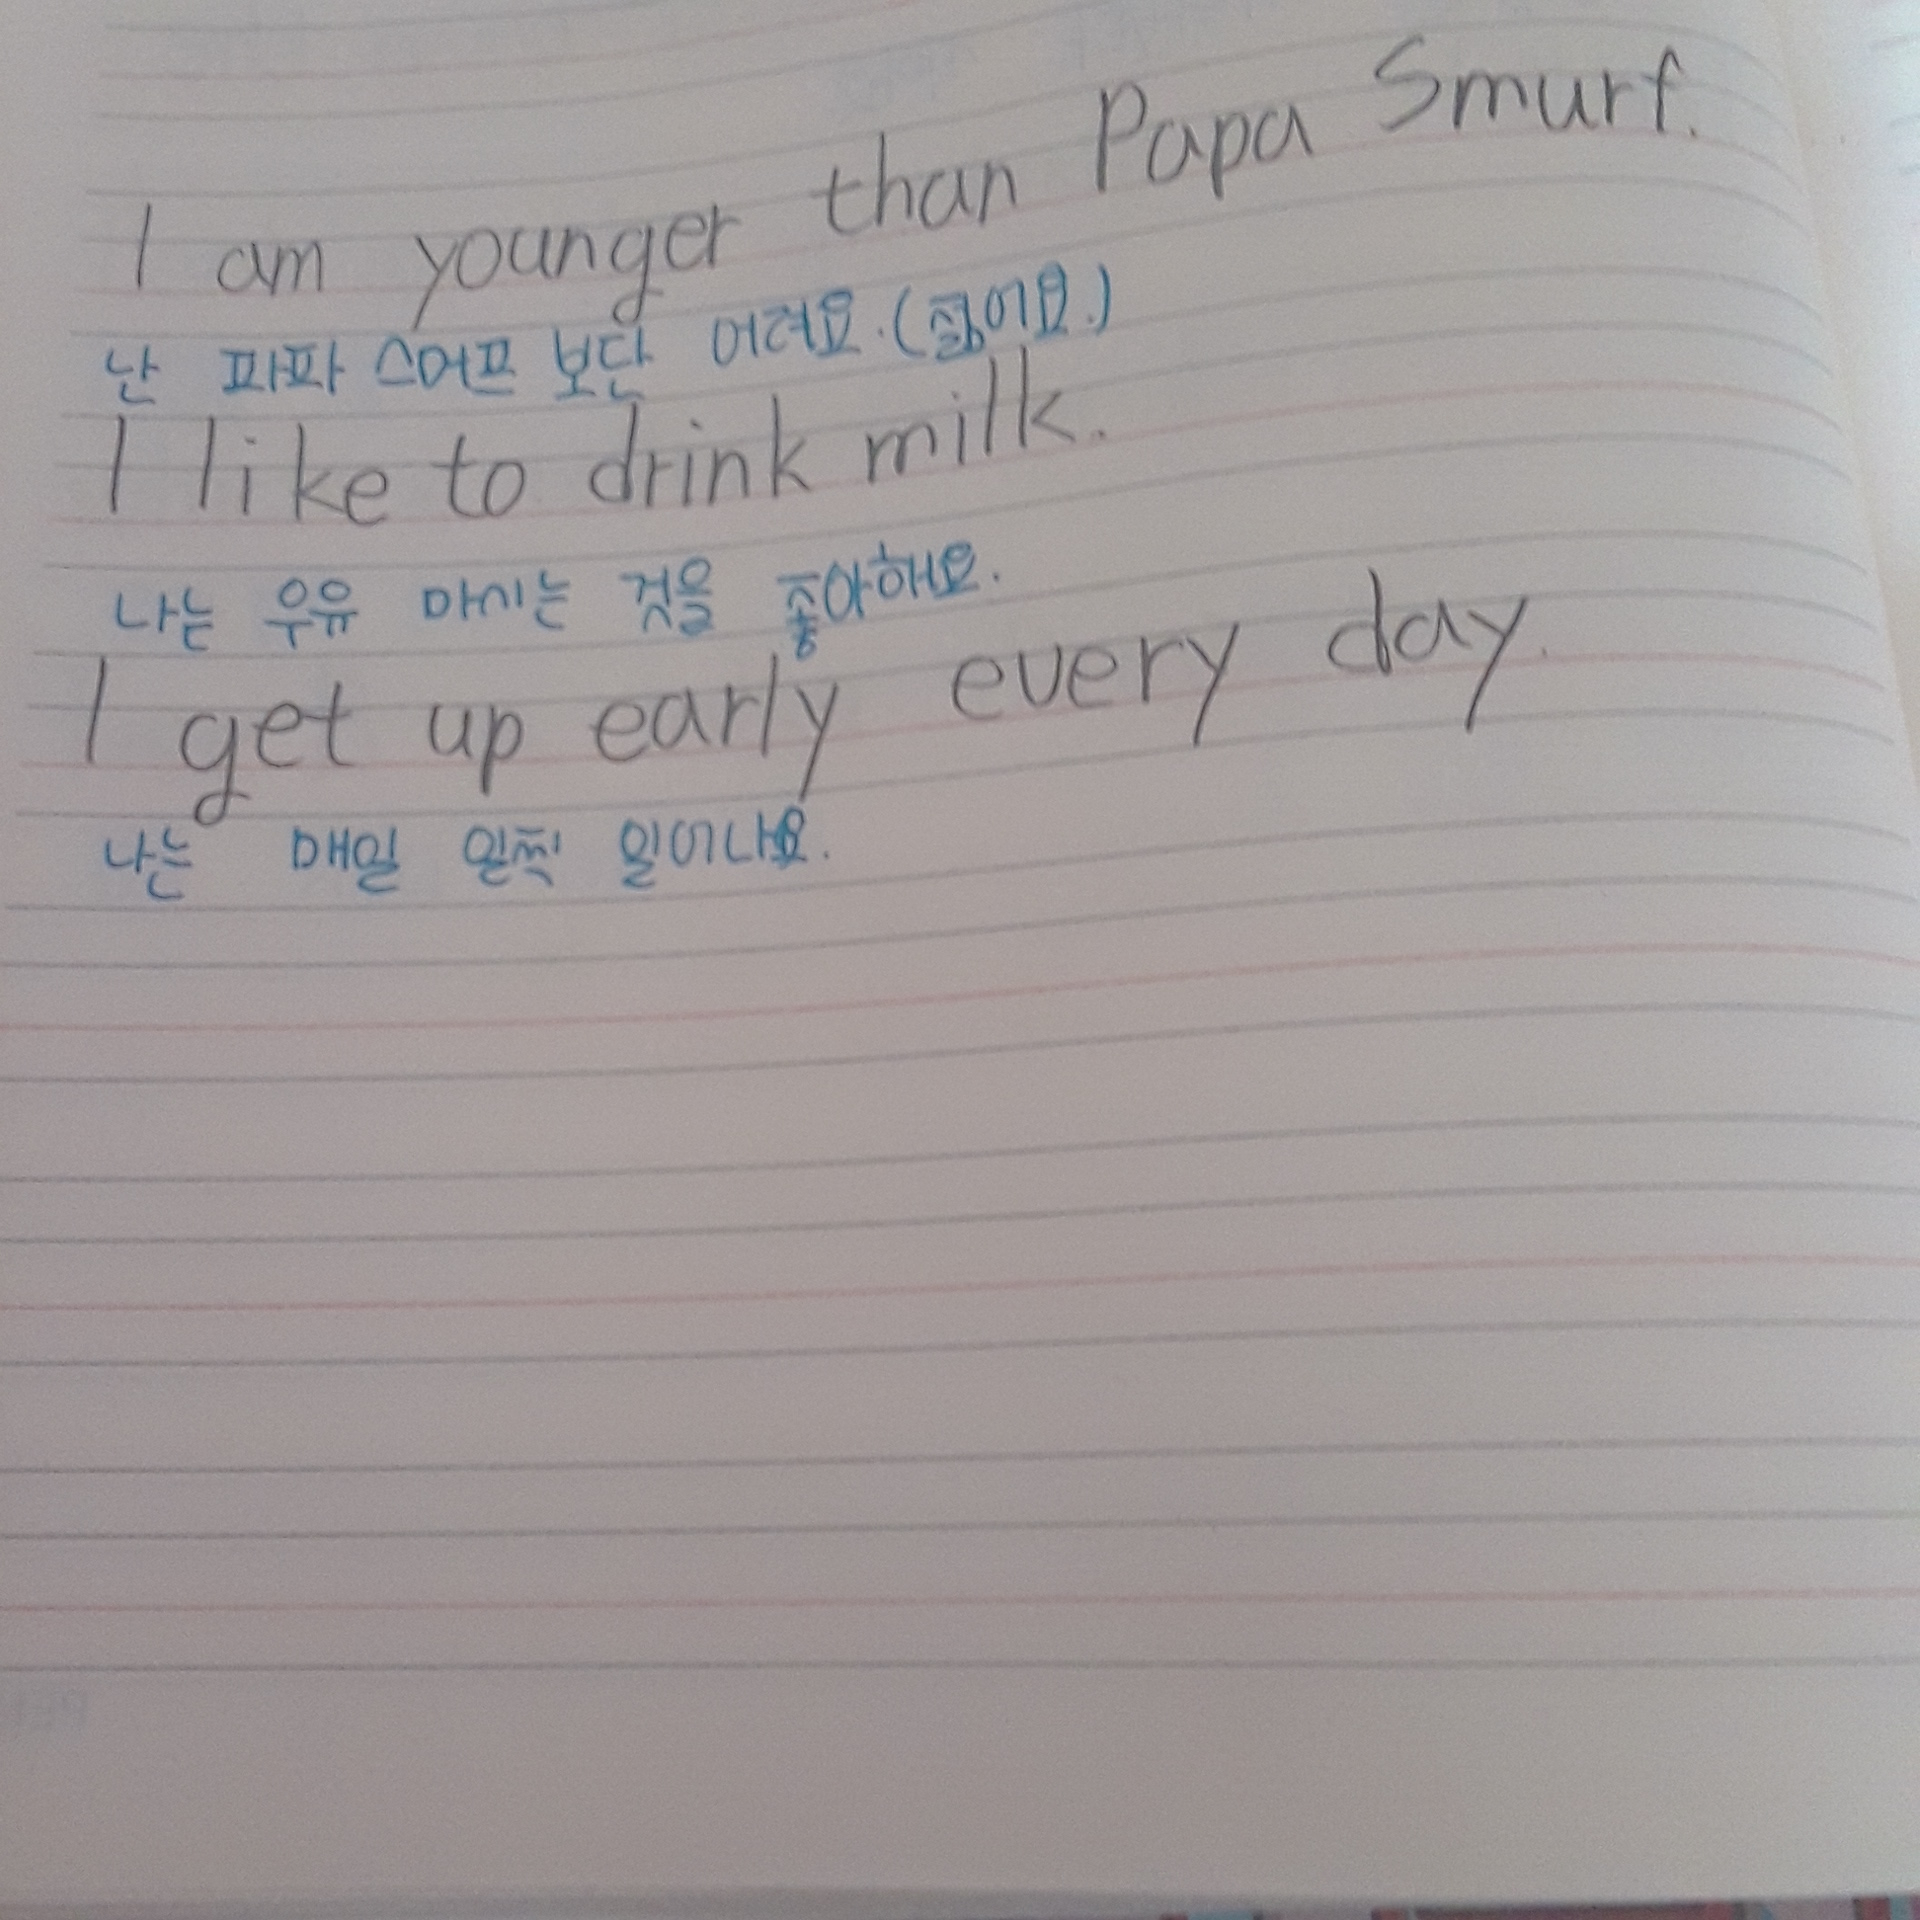 I am younger than Papa Smurf.
난 파파 스머프 보단 어려요.(젊어요.)
I like to drink milk.
나는 우유 마시는 것을 좋아해요.
I get up early every day.
나는 매일 일찍 일어나요.